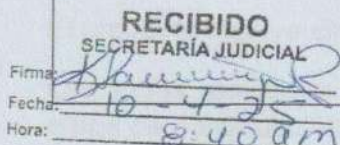 RECIBIDO
SECRETARÍA JUDICIAL
Firma:
Fecha: 10-4-25
Hora: 8:40 am